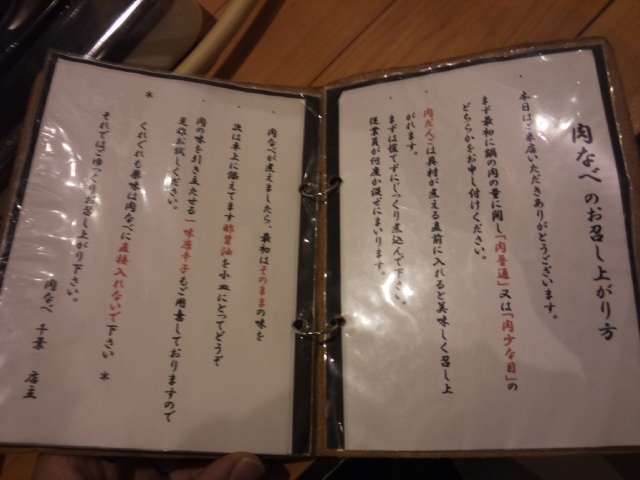 肉なべのお召し上がり方
・本日はご来店いただきありがとうございます。
まず最初に鍋の肉の量に関し「肉普通」又は「肉少な目」の
どちらかをお申し付けください。
・肉だんごは具材が煮える直前に入れると美味しく召し上
がれます。
まずは慌てずにじっくり煮込んで下さい。
従業員が何度か混ぜにまいります。
・肉なべが煮えましたら、最初はそのままの味を
・次は卓上に添えてます酢醤油を小皿にとってどうぞ
・肉の味を引き立たせる一味唐辛子もご用意しておりますので
是非お試しください。
＊くれぐれも薬味は肉なべに直接入れないで下さい＊
それではごゆっくりお召し上がり下さい。
肉なべ 千葉 店主